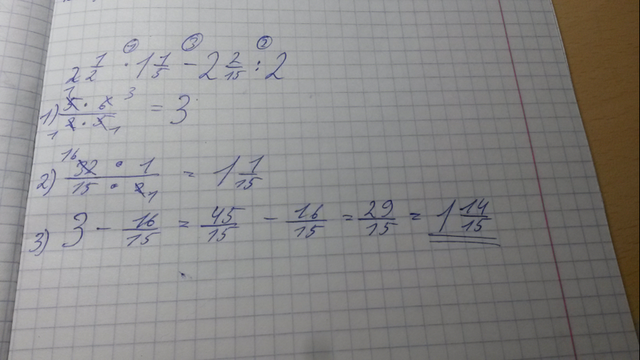 ① ③ ②
2 1/2 · 1 1/5 - 2 2/15 : 2
1) 1 5 · 6 3 / 1 2 · 5 1 = 3
2) 16 32 · 1 / 15 · 2 1 = 1 1/15
3) 3 - 16/15 = 45/15 - 16/15 = 29/15 = 1 14/15